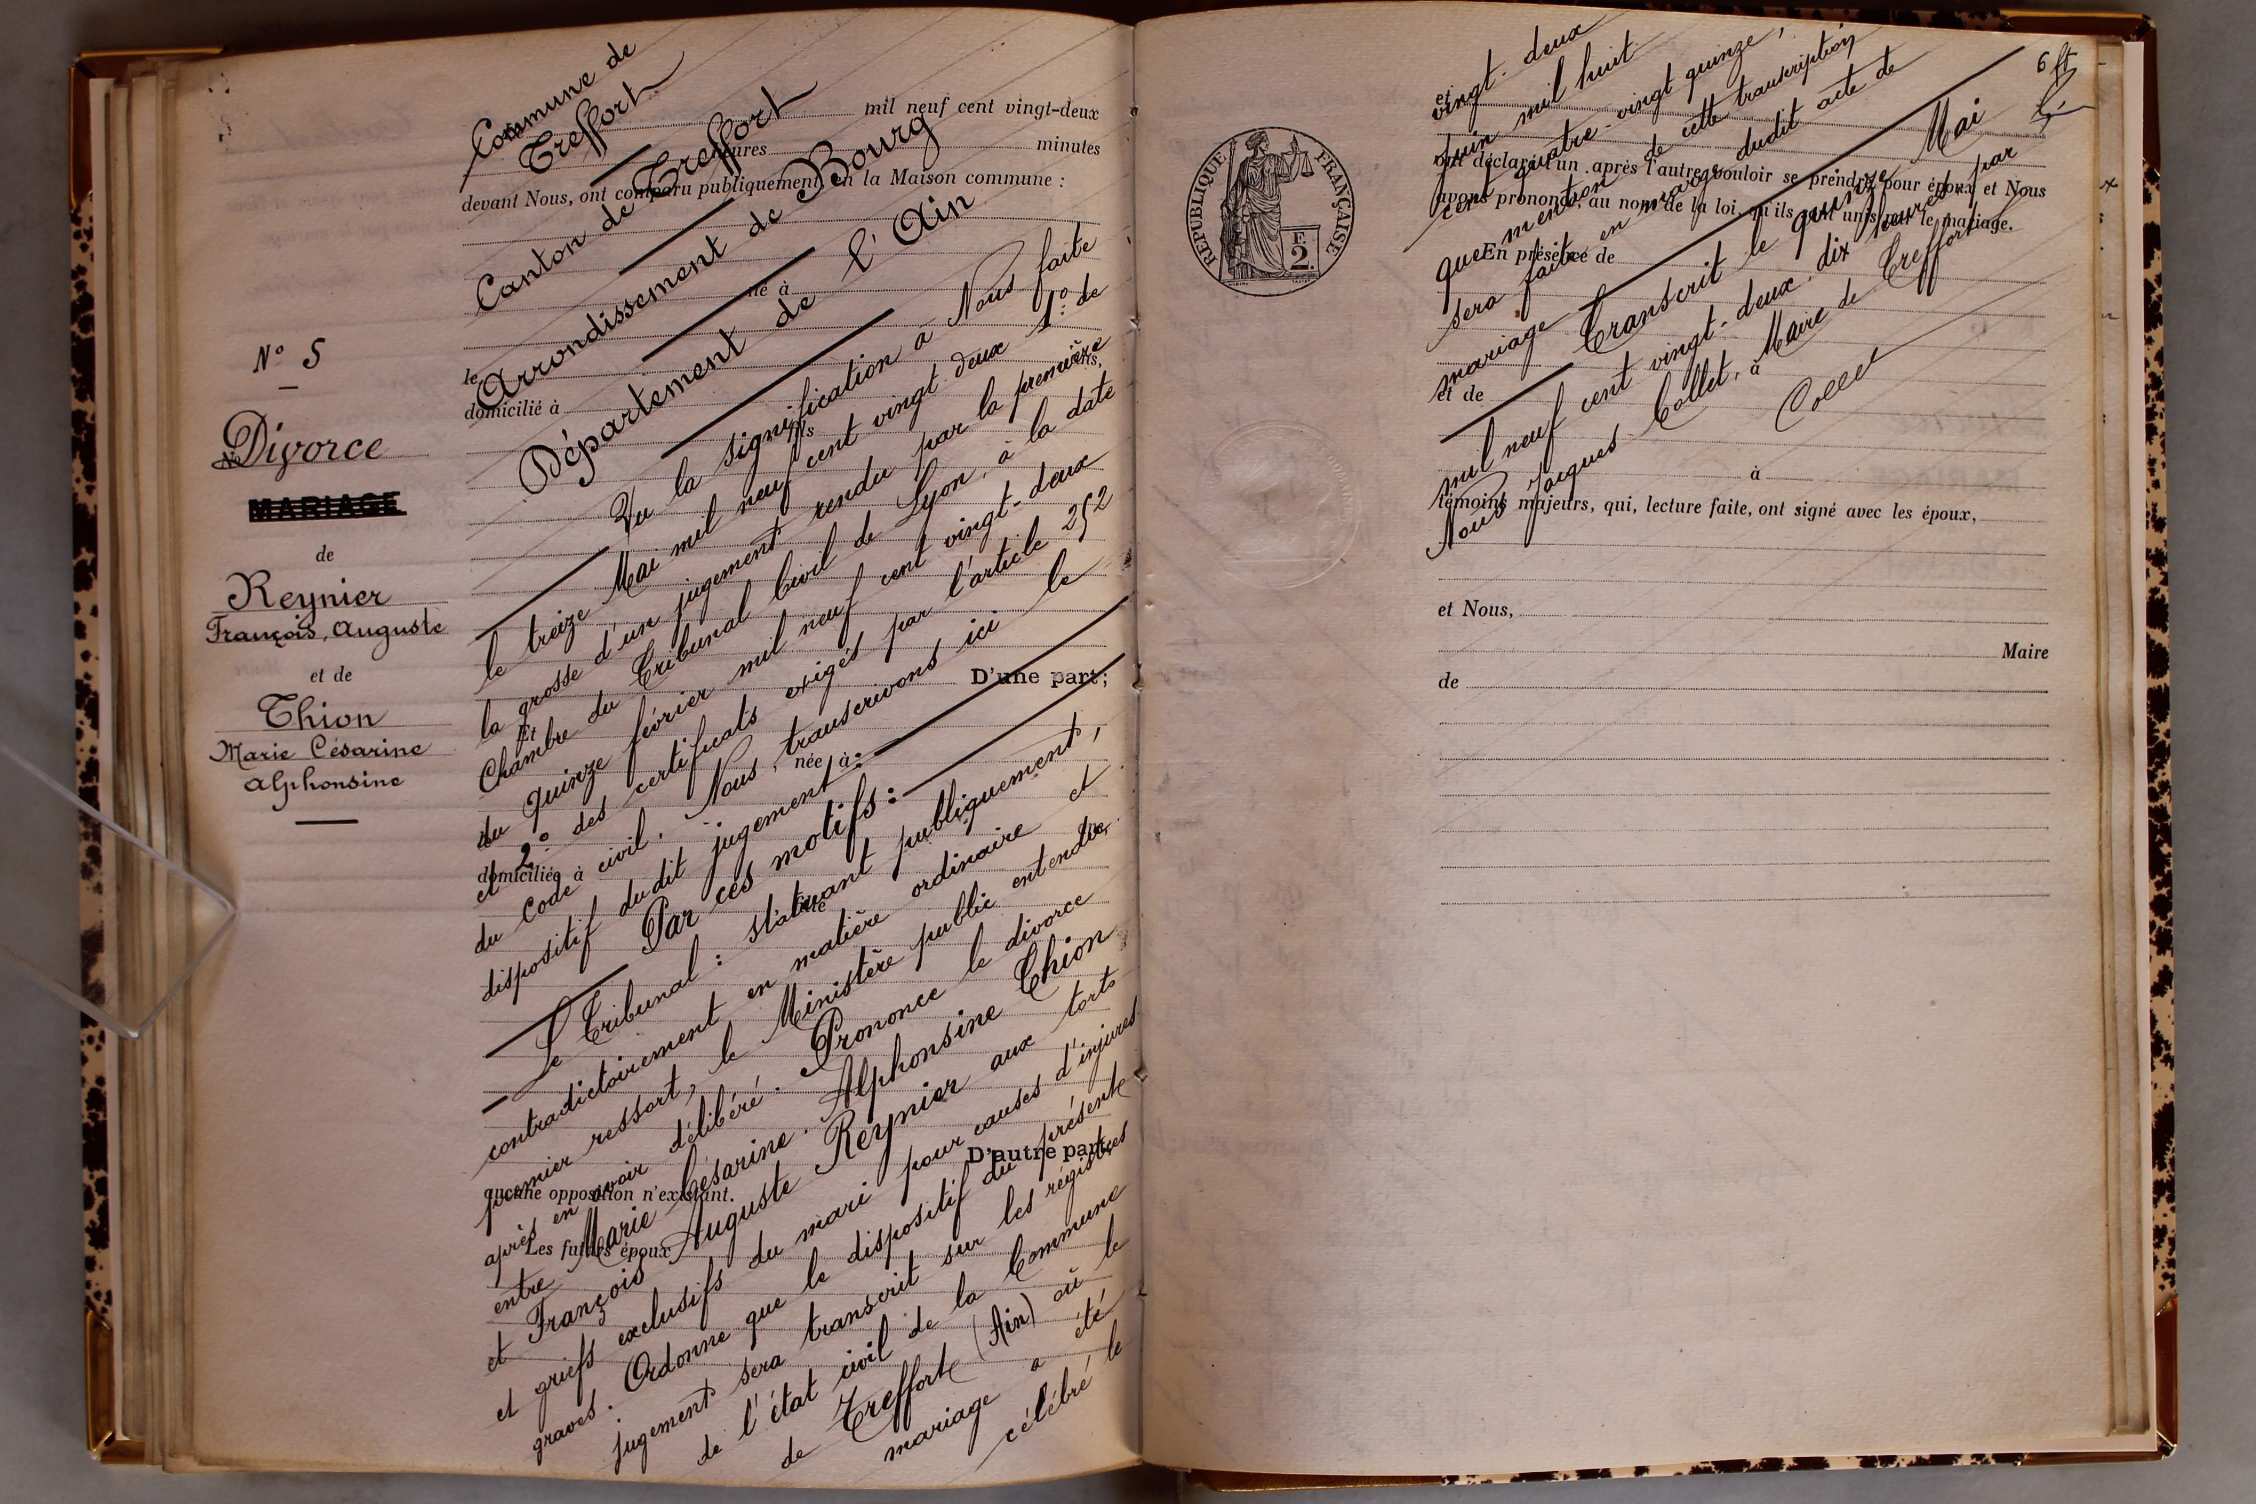 N° 5
Divorce
MARIAGE
de
Reynier
François, Auguste
et de
Thion
Marie Césarine
Alphonsine
Commune de
Treffort
Canton de Treffort
Arrondissement de Bourg
Département de l'Ain
mil neuf cent vingt-deux
heures minutes
devant Nous, ont comparu publiquement en la Maison commune :
né à
le
domicilié à
fils
Vu la signification à Nous faite
le treize Mai mil neuf cent vingt deux 1° de
la grosse d'un jugement rendu par la première
Chambre du Tribunal Civil de Lyon, à la date
du quinze février mil neuf cent vingt-deux
et 2° des certificats exigés par l'article 252
du Code civil. Nous, transcrivons ici le
dispositif dudit jugement :
Par ces motifs :
Le Tribunal : statuant publiquement,
contradictoirement en matière ordinaire et
premier ressort, le Ministère public entendu
après en avoir délibéré. Prononce le divorce
entre Marie Césarine Alphonsine Thion
et François Auguste Reynier aux torts
et griefs exclusifs du mari pour causes d'injures
graves. Ordonne que le dispositif du présent
jugement sera transcrit sur les régistres
de l'état civil de la Commune
de Treffort (Ain) où le
mariage a été
célébré le
D'une part;
Et
née à
domiciliée à
fille
D'autre part,
aucune opposition n'existant.
Les futurs époux
REPUBLIQUE FRANÇAISE
F.
2.
6 ft
vingt-deux
juin mil huit
cent quatre-vingt quinze,
que mention de cette transcription
sera faite en marge dudit acte de
mariage
Transcrit le quinze Mai
mil neuf cent vingt-deux, dix heures, par
Nous Jacques Collet, Maire de Treffort
Collet
et
ont déclaré l'un après l'autre vouloir se prendre pour époux et Nous
avons prononcé, au nom de la loi, qu'ils sont unis par le mariage.
En présence de
et de
à
à
témoins majeurs, qui, lecture faite, ont signé avec les époux,
et Nous,
Maire
de